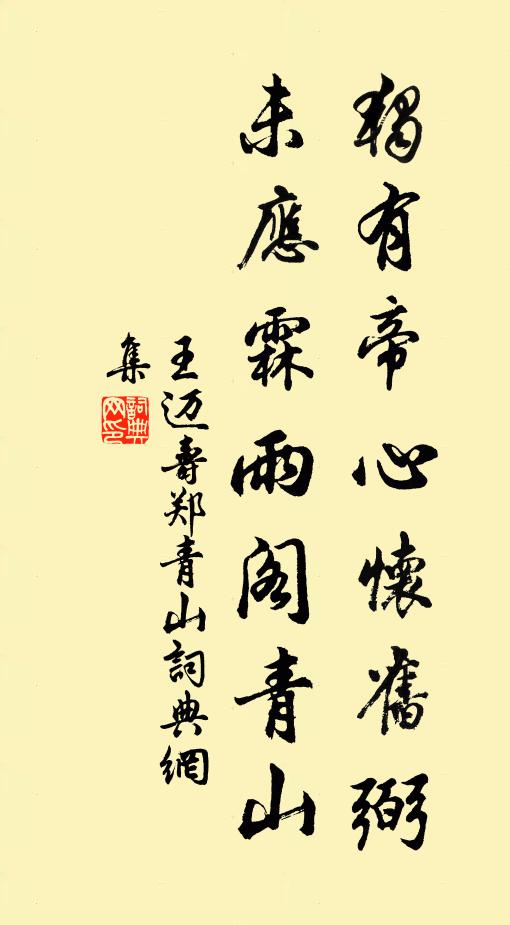 獨有帝心懷舊弼
未應霖雨閣青山
王迈壽郑青山詞典網
集
詞典
网印